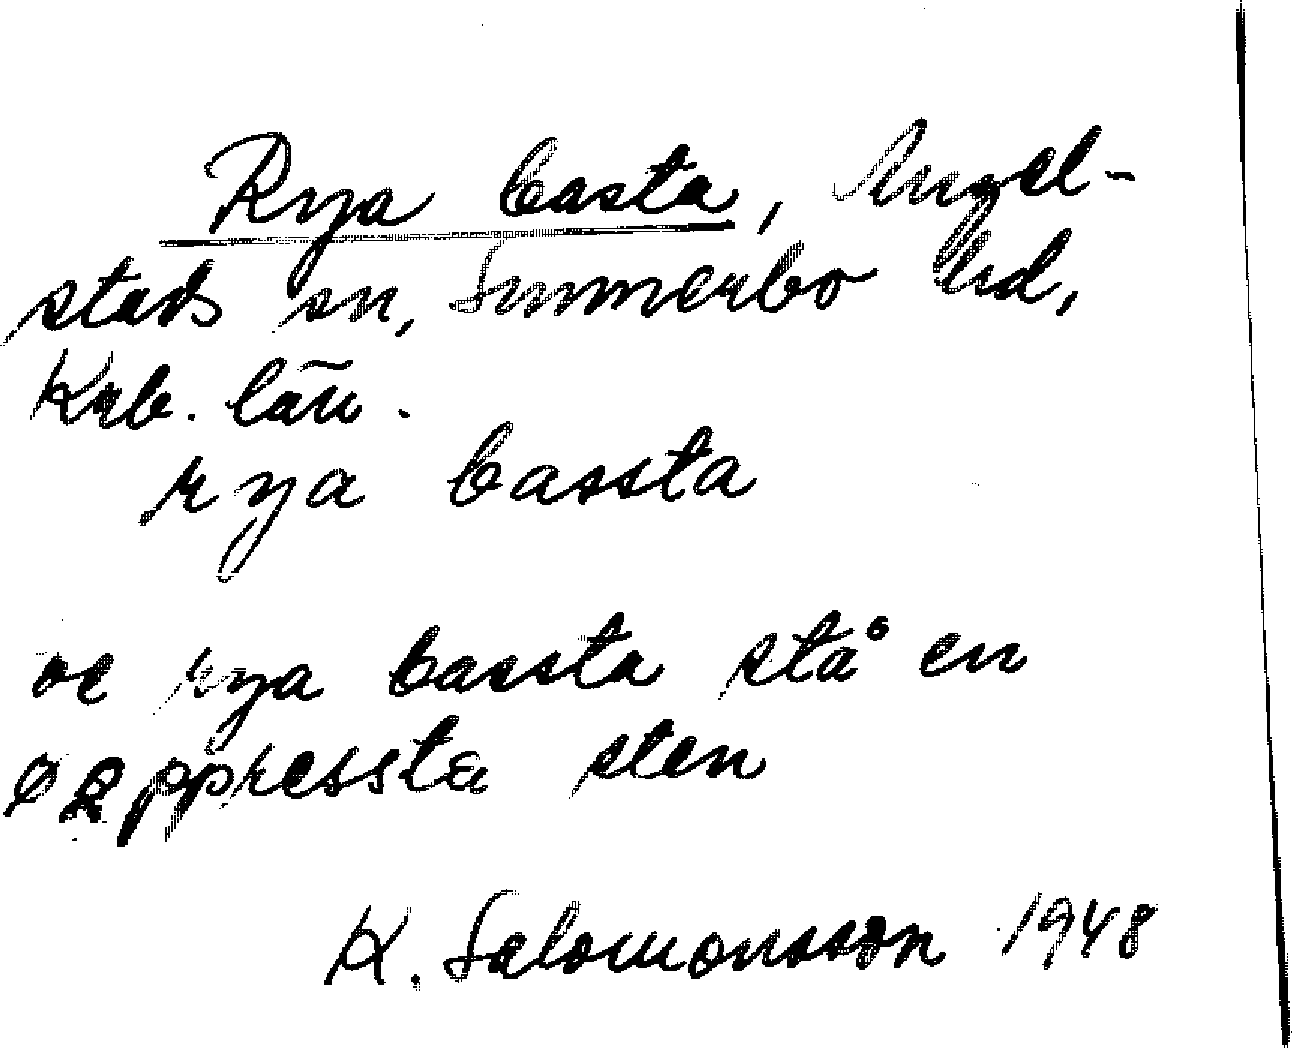 Rya basta, Angel-
stads sn, Sunnerbo hd,
Krb. län.
rya bassta
ve rya bassta stå en
sten
K. Salomonsson 1948